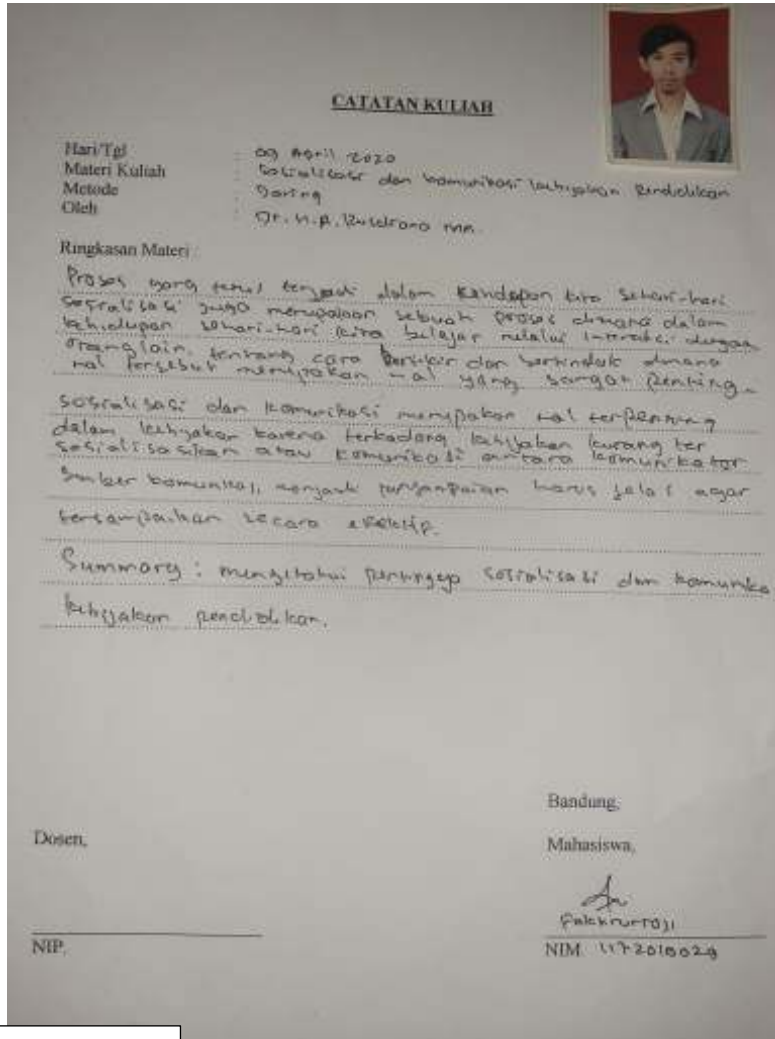 CATATAN KULIAH
Hari/Tgl : 09 April 2020
Materi Kuliah : Sosialisasi dan komunikasi kebijakan Pendidikan
Metode : Daring
Oleh : Dr. H. A. Rusdiana MM.
Ringkasan Materi :
Proses yang terjadi dalam kita sehari-hari
sosialisasi juga merupakan sebuah proses dimana dalam
kehidupan sehari-hari kita belajar melalui interaksi dengan
orang lain, tentang cara berfikir dan bertindak dimana
hal tersebut merupakan hal yang sangat penting.
sosialisasi dan komunikasi merupakan hal terpenting
dalam kebijakan karena terkadang kebijakan kurang ter
sosialisasikan atau komunikasi antara komunikator
Sumber komunikasi, penyampaian harus jelas agar
tersampaikan secara efektif.
Summary : mengetahui sosialisasi dan komunika
kebijakan pendidikan.
Bandung,
Dosen,
Mahasiswa,
Fakhrurroji
NIP.
NIM. 1172010029